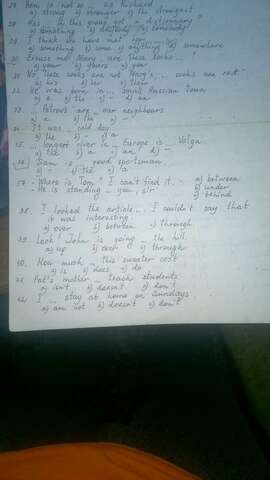 28. Ken is not so ... as Richard.
a) strong b) stronger c) the strongest
29. Has ... in this group got a dictionary?
a) something b) anybody c) somebody
29. I think we have met him ...
a) something b) some c) anything d) somewhere
30. Excuse me! Mary, are these books ...?
a) your b) yours c) you
31. No, these books are not Mary's, ... books are red.
a) his b) her c) their
32. He was born in ... small Russian town
a) a b) the c) - d) an
33. ... Petrovs are our neighbours
a) a b) the c) -
34. It was ... cold day.
a) the b) - c) a
35. ... longest river in ... Europe is ... Volga
a) the b) a c) an d) -
36. Sam is ... good sportsman.
a) - b) the c) a
37. - Where is Tom? I can't find it. a) between
- He is standing ... you, sir b) under
c) behind
38. I looked ... the article... I couldn't say that
it was interesting.
a) over b) between c) through
39. Look! John is going ... the hill.
a) up b) over c) through
40. How much ... this sweater cost
a) is b) does c) do
41. Pat's mother ... teach students.
a) isn't b) doesn't c) don't
42. I ... stay at home on Sundays
a) am not b) doesn't c) don't